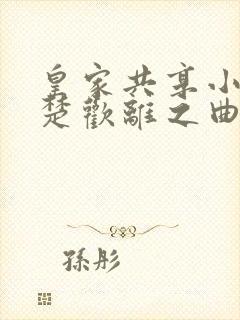 皇家共享小
楚歡離之曲
孫彤